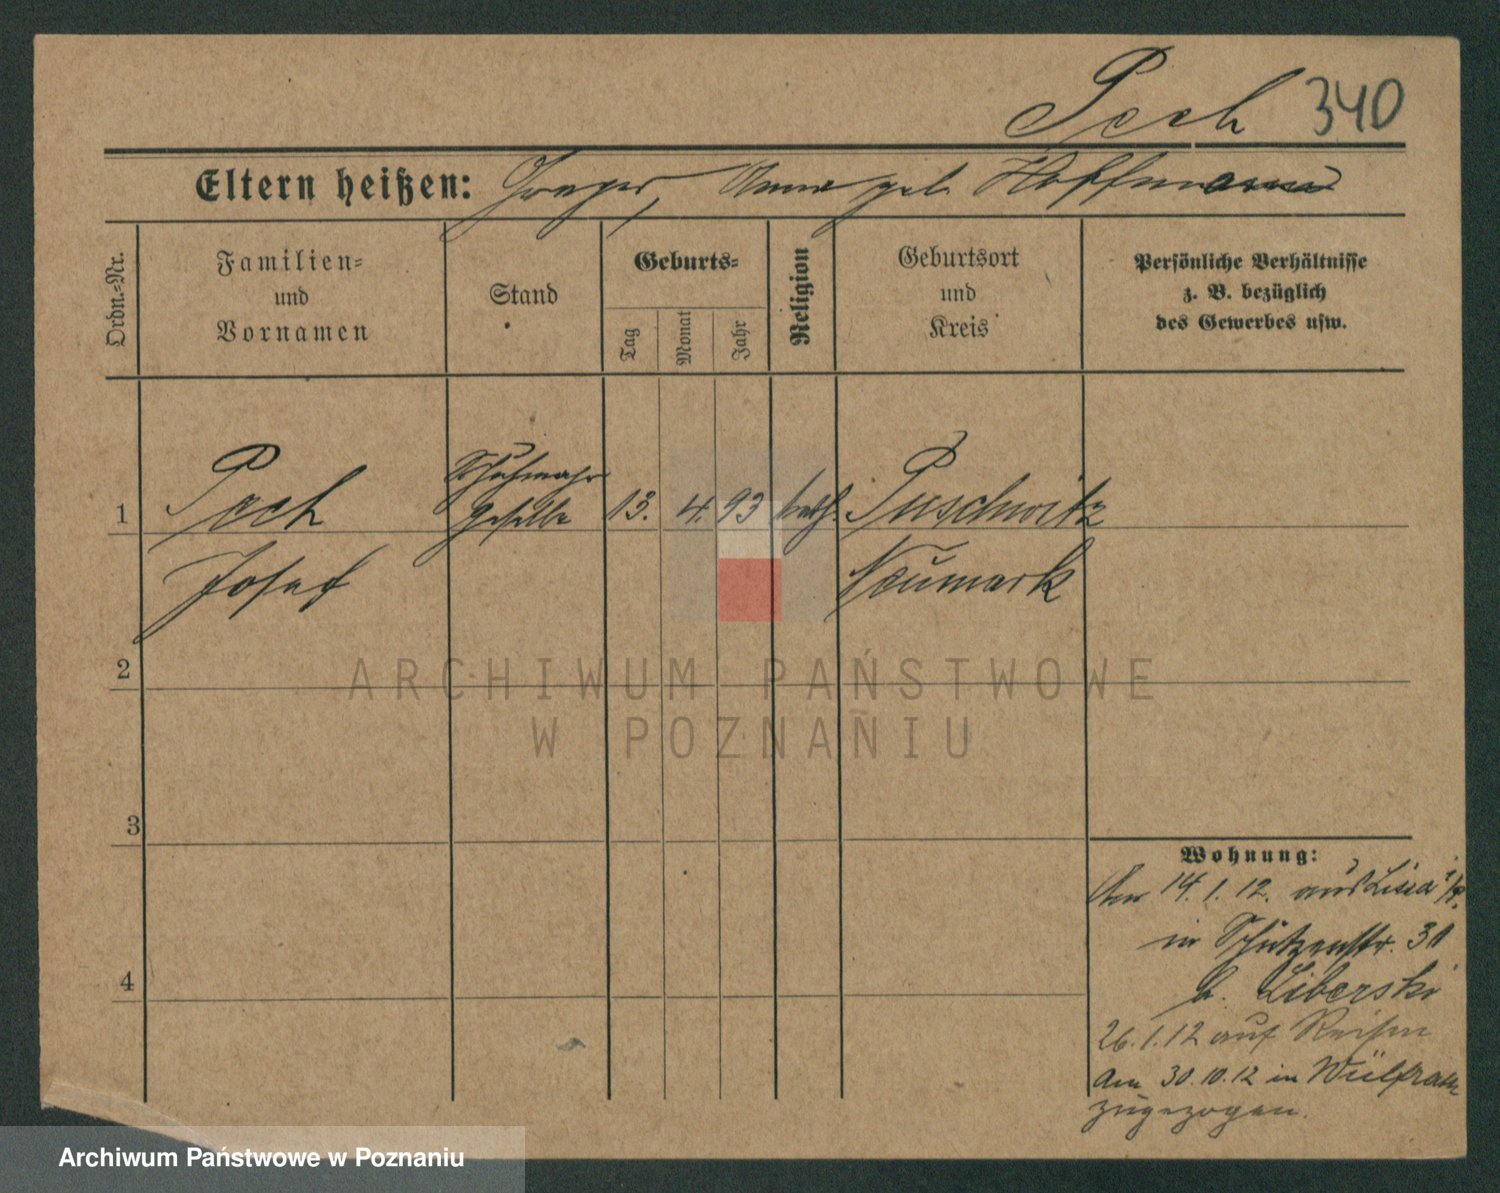 Pech 340
Eltern heißen: Anna geb. Hoffmann
Ordn.-Nr.
Familien-
und
Vornamen
Stand
Geburts-
Tag
Monat
Jahr
Religion
Geburtsort
und
Kreis
Persönliche Verhältnisse
z. B. bezüglich
des Gewerbes usw.
1
Pech
Josef
Schuhmacher
Geselle
13. 4. 93
kath.
Puschwitz
Neumark
2
3
4
Wohnung:
Am 14. 1. 12. aus Lissa i/P.
in Schützenstr. 31
b. Liberski
26. 1. 12 auf Reisen
Am 30. 10. 12 in Wülfrath
zugezogen.
ARCHIWUM PAŃSTWOWE
W POZNANIU
Archiwum Państwowe w Poznaniu